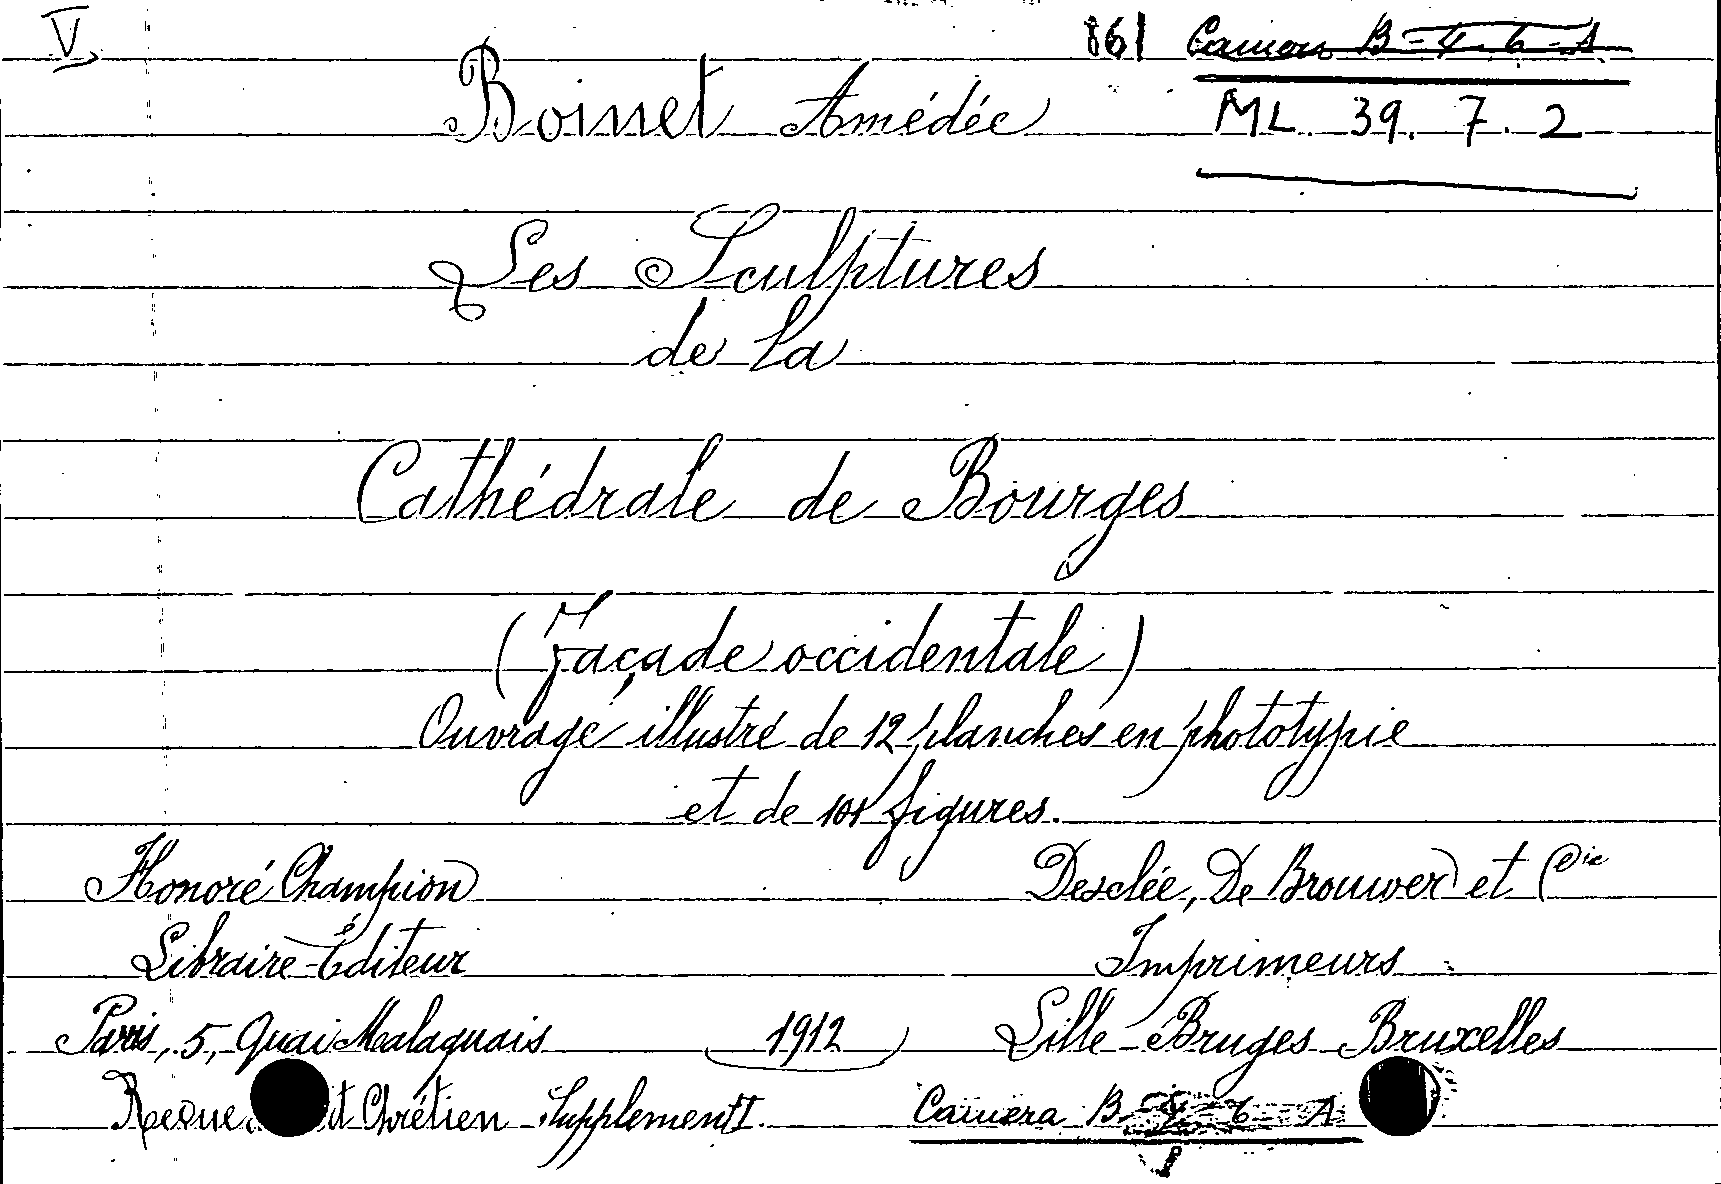 V
861 Camera B-4-6-A
Boinet Amédée ML. 39. 7. 2
Les Sculptures
de la
Cathédrale de Bourges
(Façade occidentale)
Ouvrage illustré de 12 planches en phototypie
et de 101 figures.
Honoré Champion Desclée, De Brouwer et Cie
Libraire-Éditeur Imprimeurs
Paris, 5, Quai Malaquais 1912 Lille-Bruges Bruxelles
Revue Chrétien Supplement I. Camera B-4-6-A